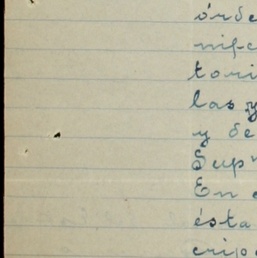 órde
nife
tori
las y
y de
Sup
En
ésta
crip